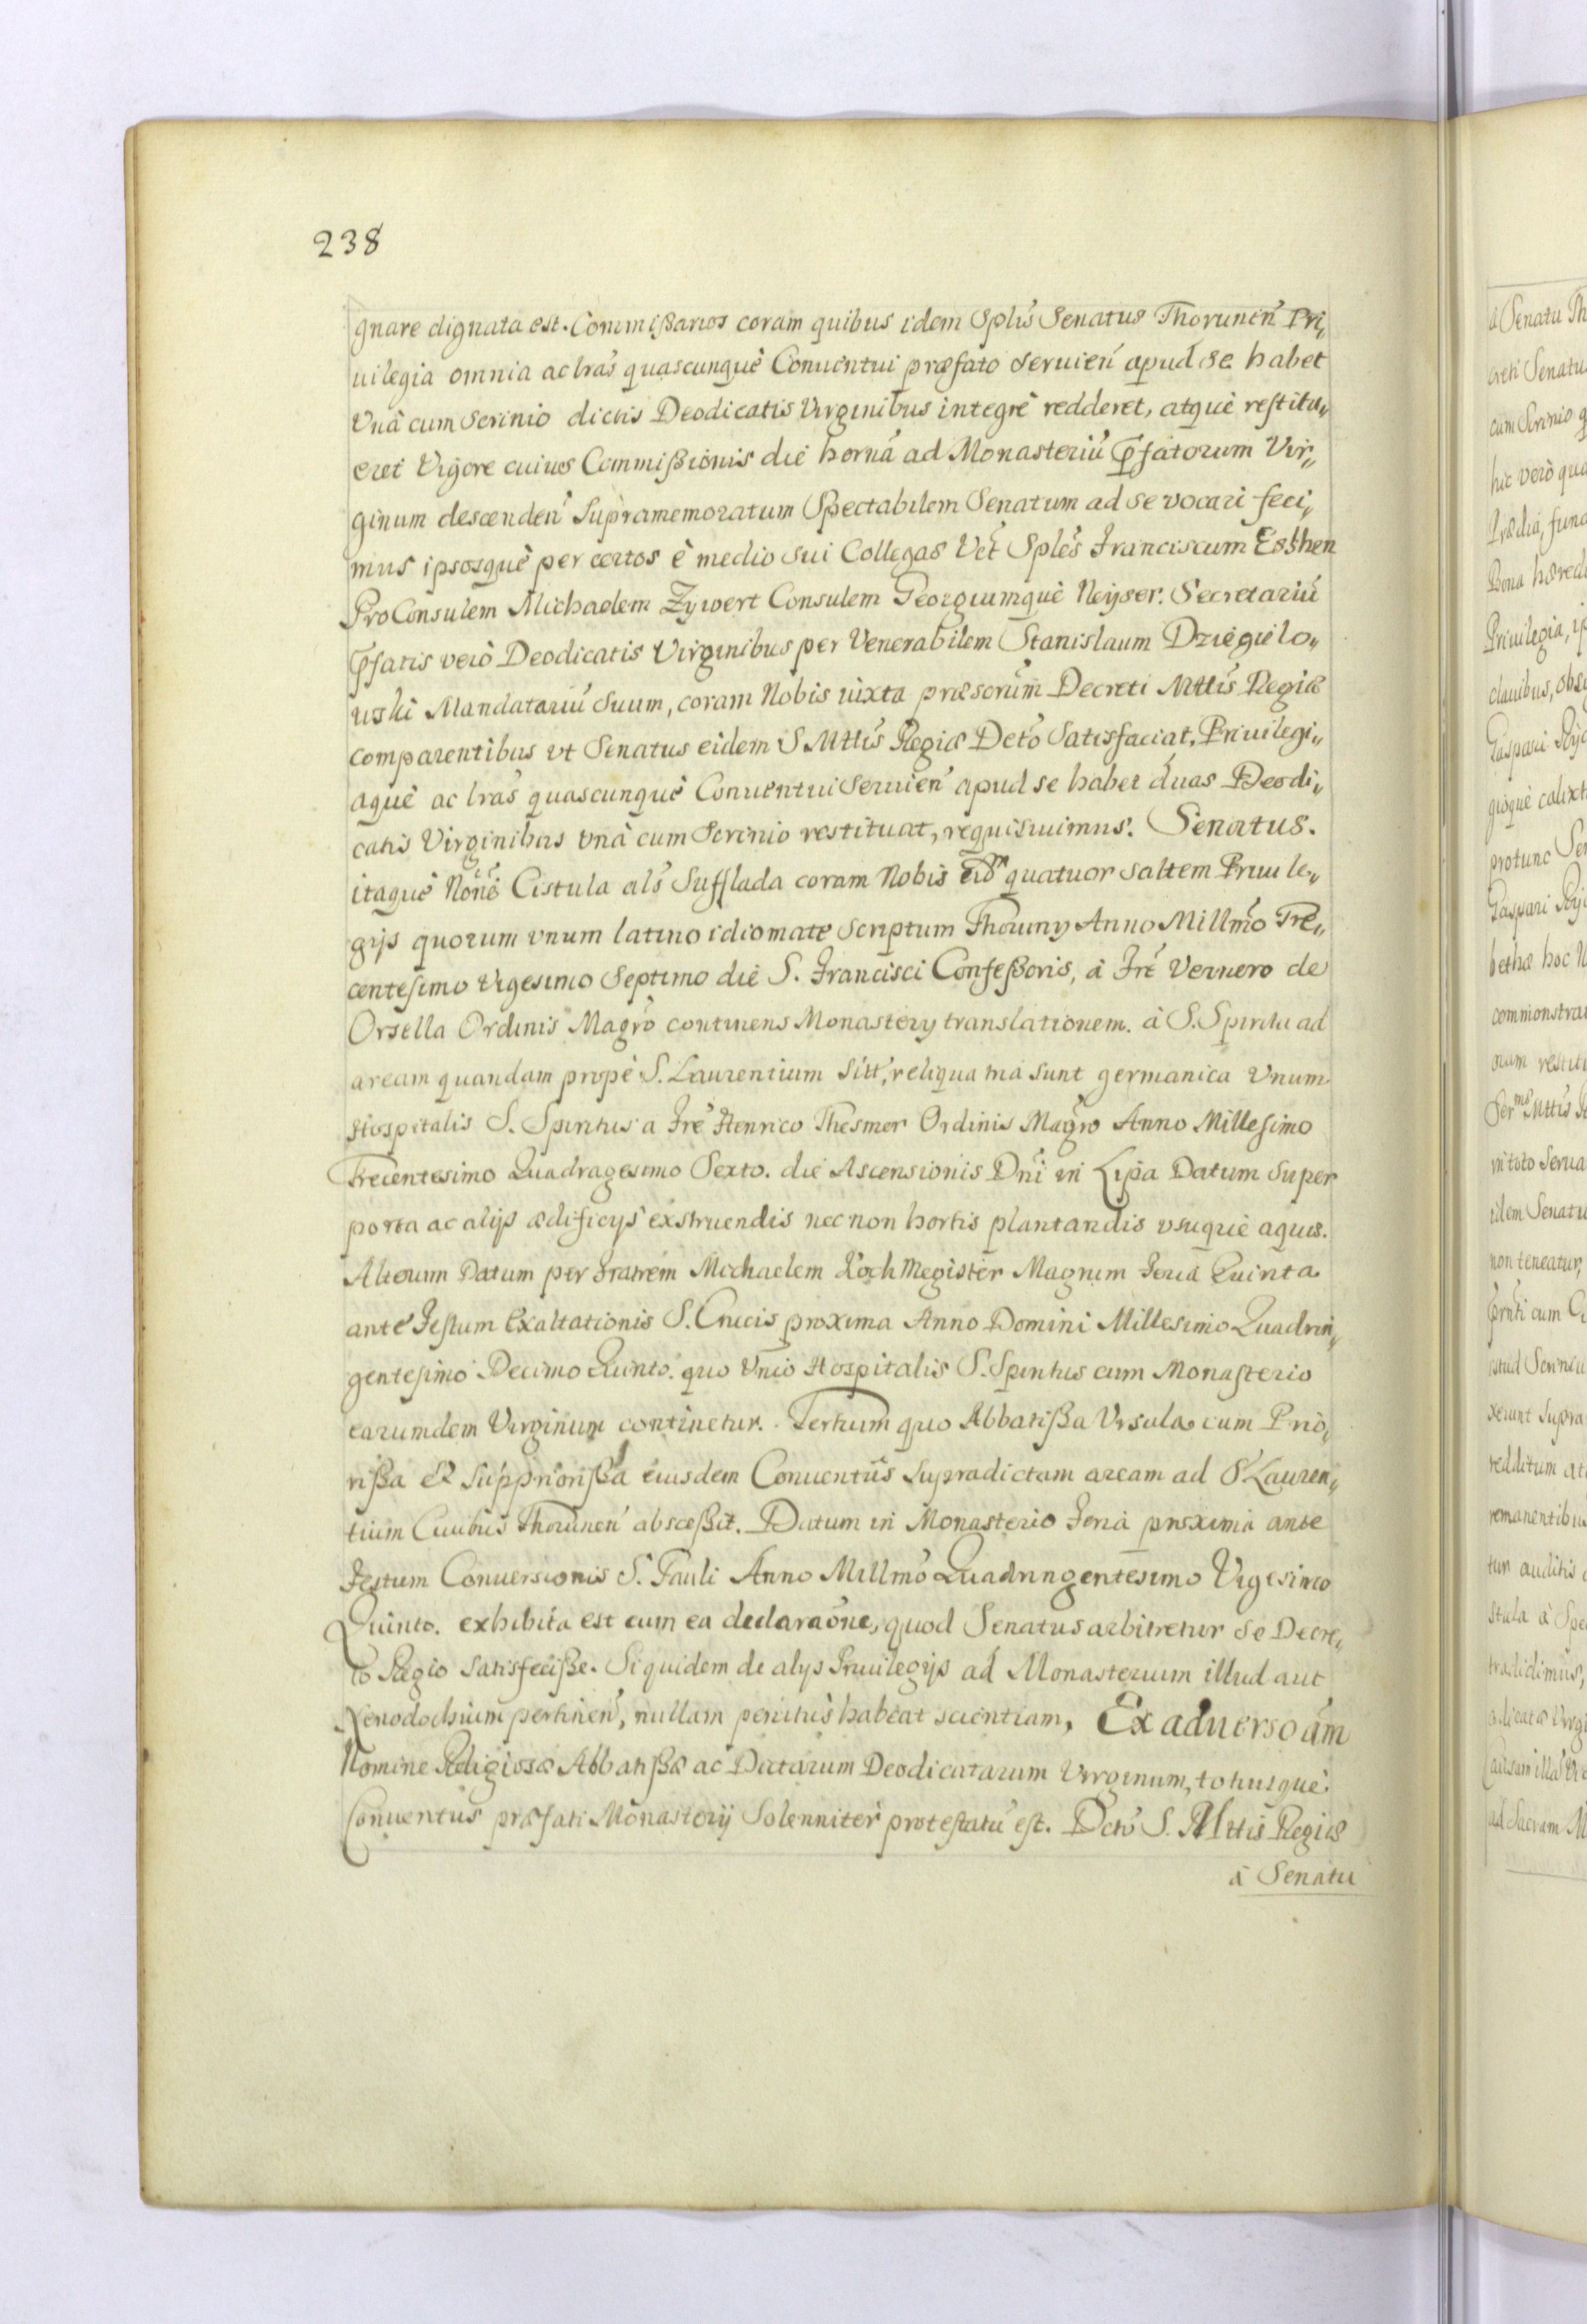 238
gnare dignata est. Commißarios coram quibus idem Splis Senatus Thorunen̄ Pri„
uilegia omnia ac lras quascunquè Conuentui præfato seruien̄ apud se habet
Vnâ cum Scrinio dictis Deodicatis Virginibus integrè redderet, atquè restitu„
eret Vigore cuius Commißionis die hernâ ad Monasteriū p̄fatorum Vir„
ginum descenden̄ Supramemoratum Spectabilem Senatum ad se vocari feci„
mus ipsosquè per certos è medio sui Collegas Vet Sples Franciscum Esthen
ProConsulem Michaelem Zywert Consulem Georgiumquè Neyser. Secretariū
p̄fatis verò Deodicatis Virginibus per Venerabilem Stanislaum Dziegielo„
wski Mandatariū Suum, coram Nobis iuxta præscrum̄ Decreti Mttis Regiæ
comparentibus vt Senatus eidem S Mttis Regiæ Deto Satisfaciat. Priuilegi„
aquè ac lras quascunquè Conuentui seruien̄ apud se habet duas Deodi„
catis Virginibus vnâ cum Scrinio restituat, requisiuimus. Senatus.
itaquè Cistula als Sufflada coram Nobis quatuor saltem Priuile„
gijs quorum vnum latino idiomate scriptum Thoruny Anno Millmo Tre„
centesimo Vigesimo Septimo die S. Francisci Confeßoris, à Fre Vernero de
Orsella Ordinis Magro continens Monastery translationem. à S. Spiritu ad
aream quandam propè S. Laurentium sitt, reliqua tria sunt germanica Vnum
Hospitalis S. Spiritus a Fre Henrico Thesmer Ordinis Magro Anno Millesimo
Trecentesimo Quadragesimo Sexto. die Ascensionis Dni in Lipa Datum Super
porta ac alijs ædificys exstruendis nec non hortis plantandis vsuquè aquis.
Alterum Datum per Fratrem Michaelem Koch Megister Magnum Feria Quinta
ante Festum Exaltationis S. Crucis proxima Anno Domini Millesimo Quadrin„
gentesimo Decimo Quinto. quo Vnio Hospitalis S. Spiritus cum Monasterio
earumdem Virginum continetur. Tertium quo Abbatißa Vrsula cum Prio„
rißa et Supprioríßa eiusdem Conuentus Supradictam aream ad S. Lauren„
tium Ciuibus Thorunen̄ absceßit. Datum in Monasterio Feria proxima ante
Festum Conuersionis S. Pauli Anno Millmo Quadringentesimo Vigesimo
Quinto. exhibita est cum ea declaraōne, quod Senatus arbitretur se Decre„
to Regio Satisfeciße. Siquidem de alys Priuilegijs ad Monasterium illud aut
Xenodochium pertinen̄, nullam penitùs habeat scientiam, Ex aduerso am̄
Nomine Religiosæ Abbatißæ ac Dictarum Deodicatarum Virginum, totiusquè
Conuentus præfati Monasterij Solenniter protestatū est. Deto S. Mttis Regiæ
à Senatu